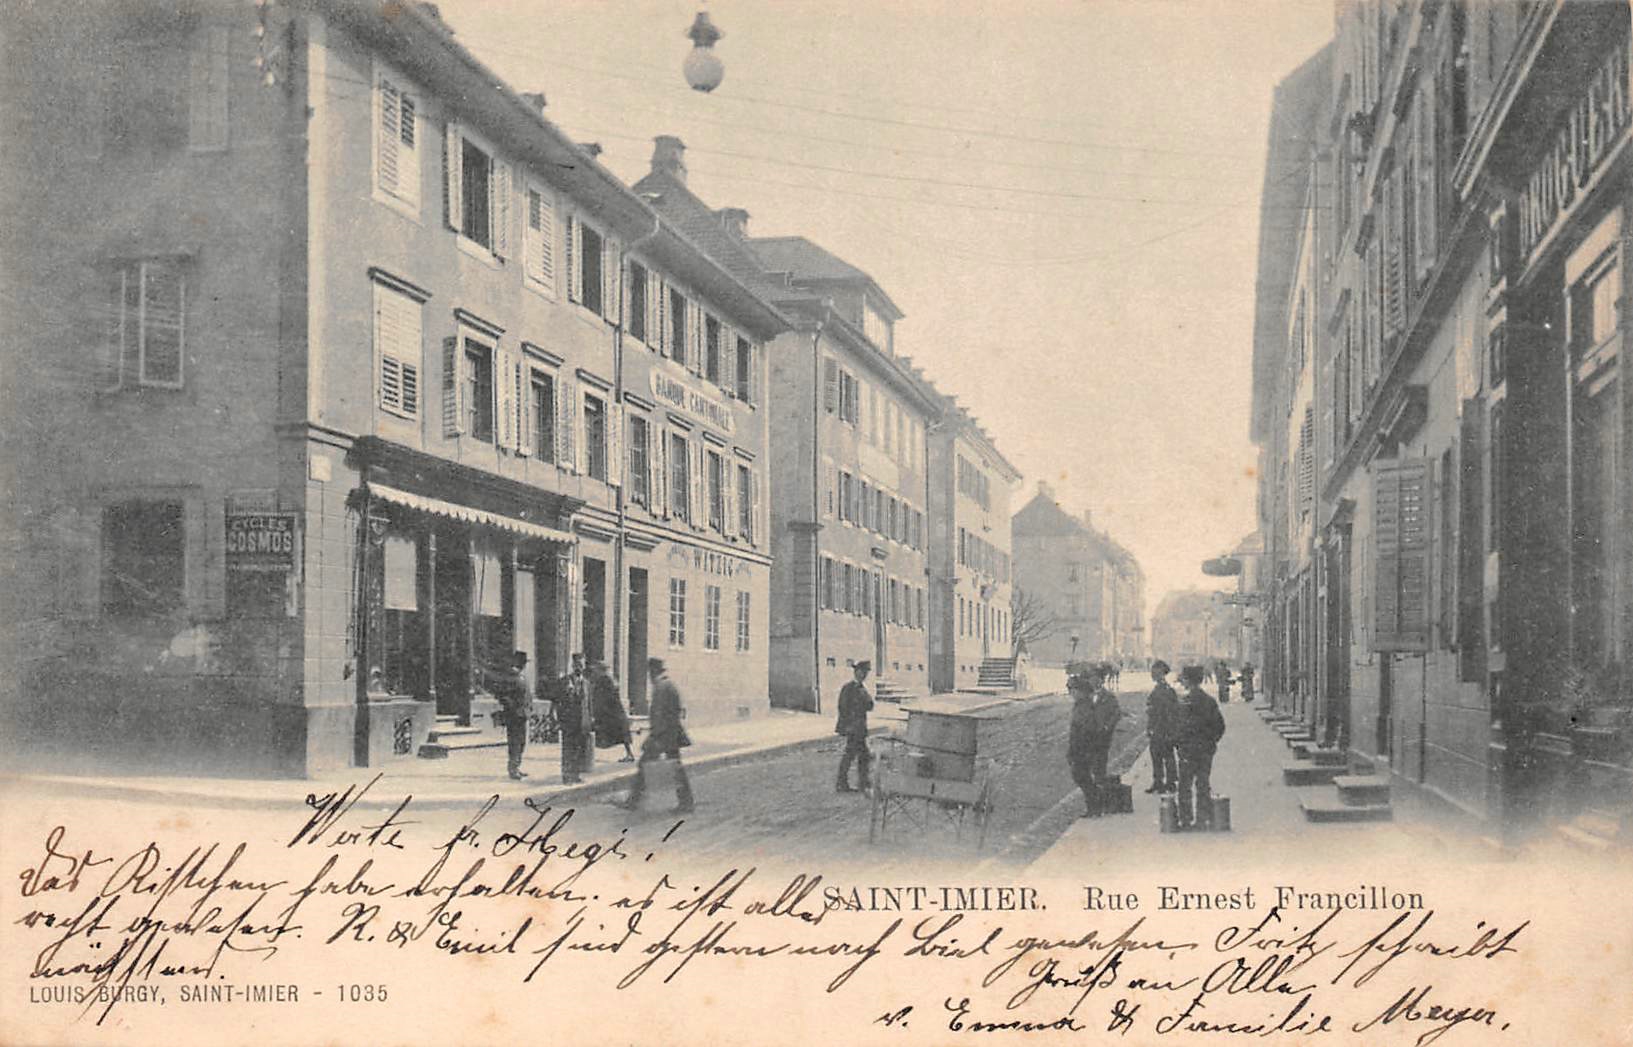 DROGUERIE
BANQUE CANTONALE
CYCLES
COSMOS
WITZIG
Werte fr. Hegi!
Das Kistchen habe erhalten. es ist alles
recht gewesen. R. & Emil sind gestern nach Biel gewesen. Fritz schreibt
nächstens.
Gruß an Alle
v. Emma & Familie Meyer.
SAINT-IMIER. Rue Ernest Francillon
LOUIS BURGY, SAINT-IMIER - 1035